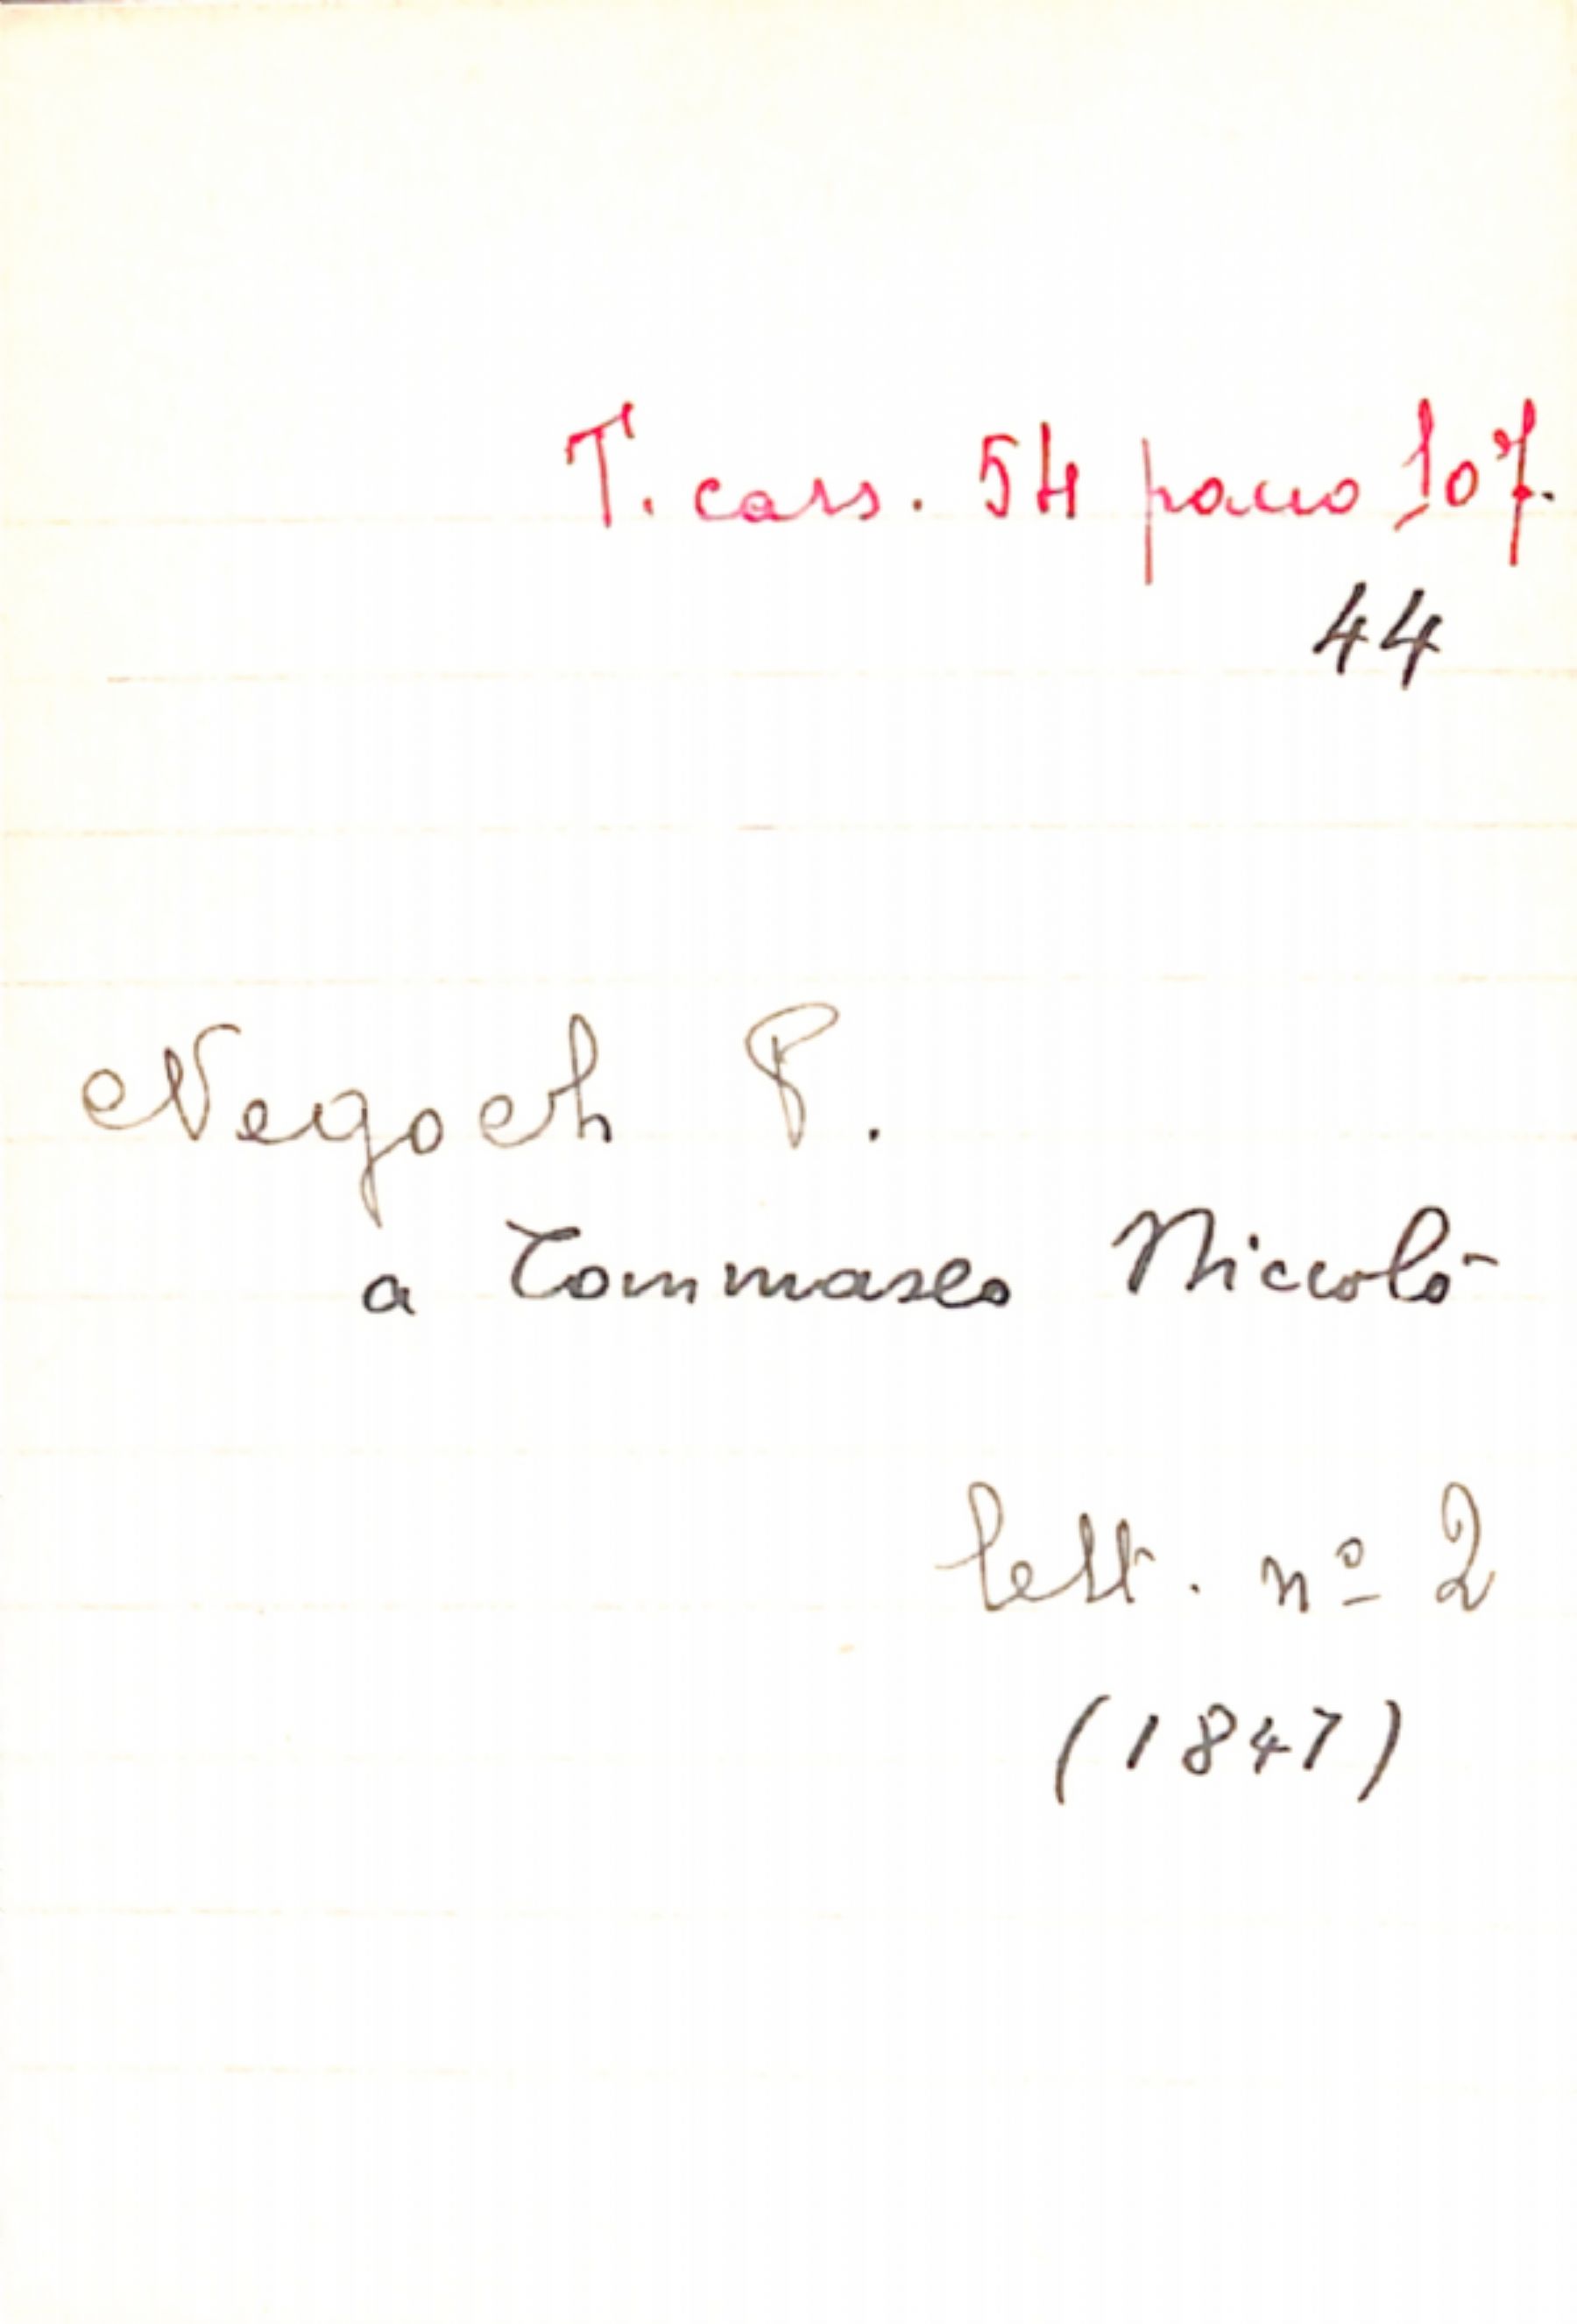 T. cass. 54 pacco 107.
44
Negoeh P.
a Tommaseo Niccolò
lett. nº 2
(1847)